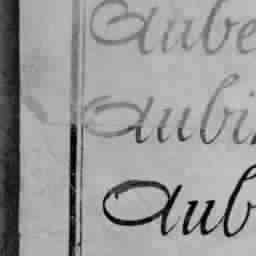 Aube
Aubi
Aub